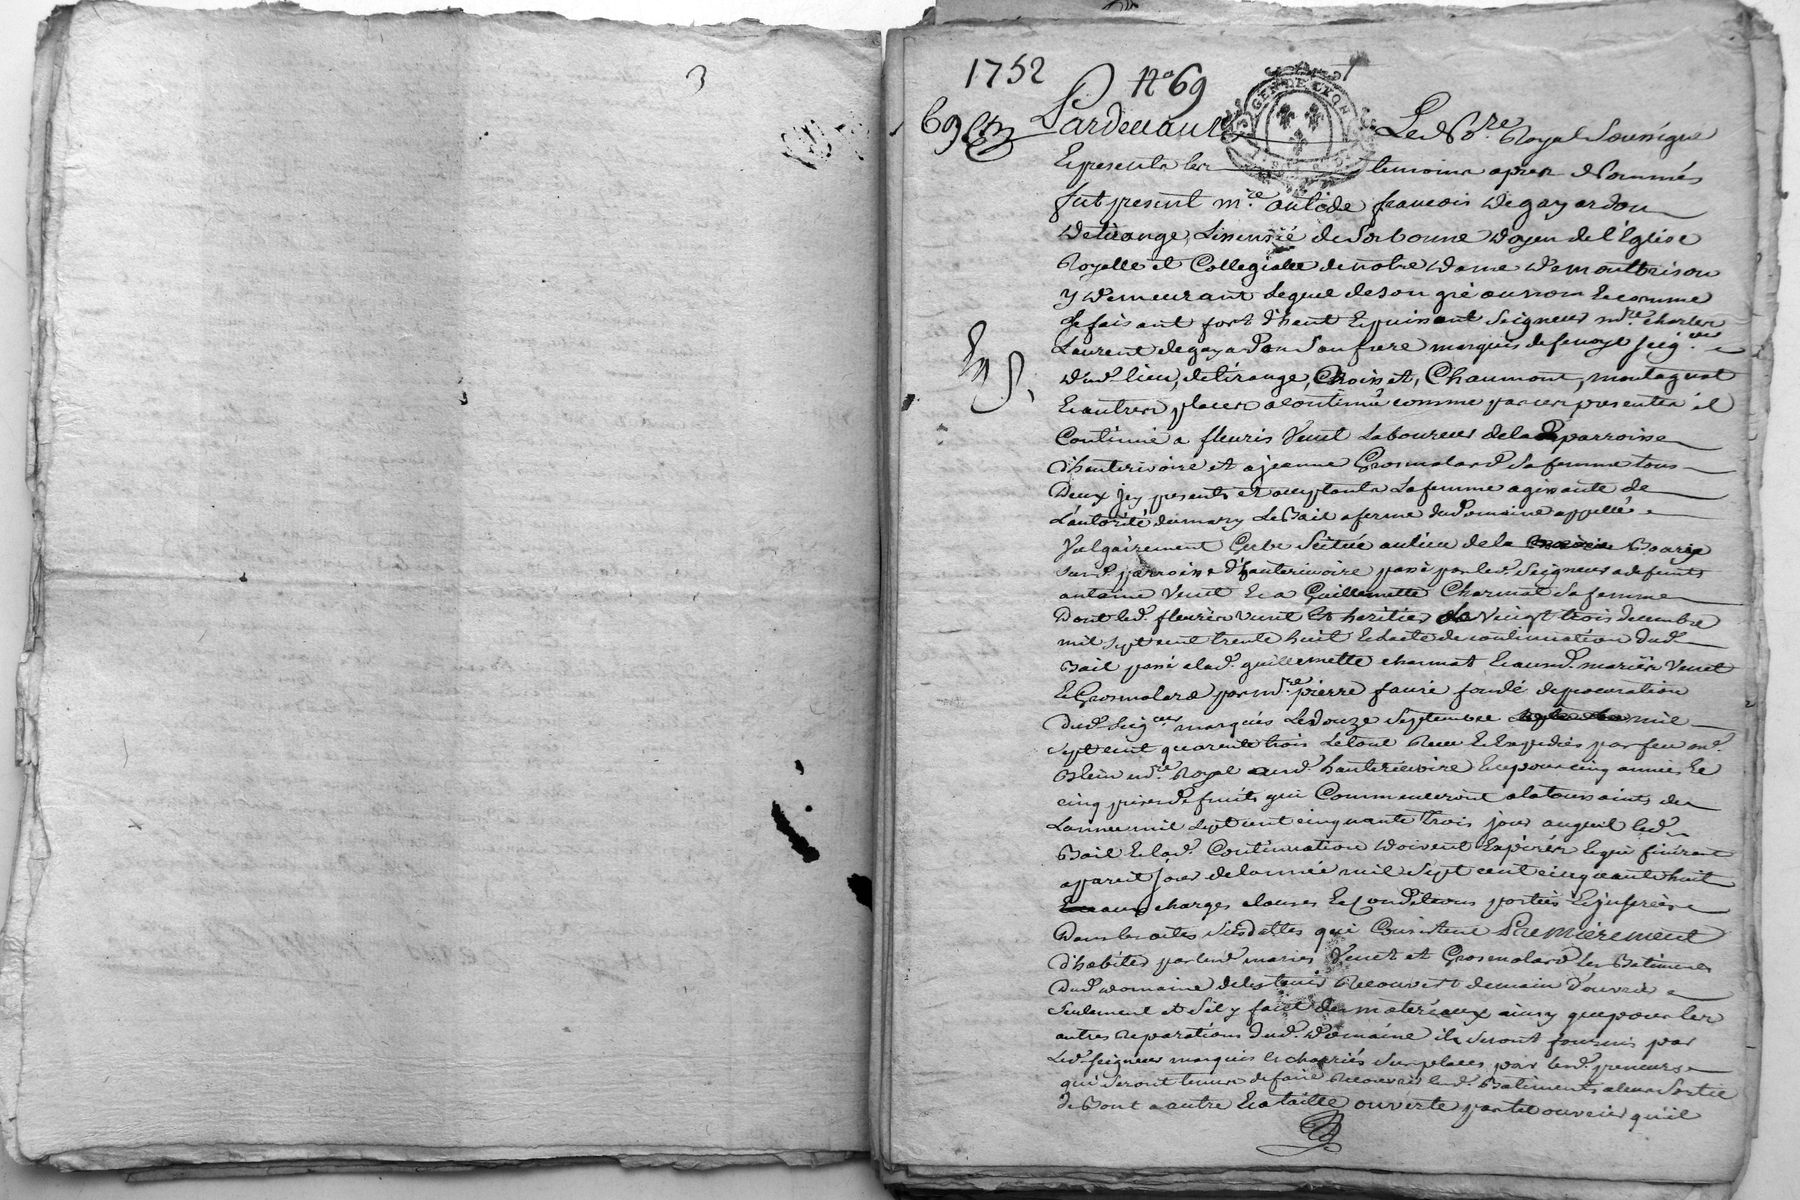 3
1752
No 69
GEN DE LYON
69e
Pardevant Le No.re Royal Soussigné
Et presents les temoins apres Nommés
fut present m.re antide francois de gayardon
de tirange, Lissensié de Sorbonne doyen de l'Eglise
Royalle et Collegialle de notre dame de montbrison
y demeurant Lequel de son gré au nom Et comme
se faisant fort d'haut Et puissant Seigneur m.re charles
Laurent de gayardon Son frere marquis de fenoyl seig.eur
dud. lieu, de tirange, Boisset, Chaumont, montagnat
Et autres places a continué comme par ces presentes il
Continüe a fleuris Venet Laboureur de la parroisse
d'hauterivoire et a jeanne Grosmolard Sa femme tous
Deux jcy presents et acceptants La femme agissante de
L'autorité du mary Le Bail a ferme du Domaine appellé
Vulgairement Scitué au lieu de la
Sud. parroisse d'hauterivoire passé par led. Seigneur a defunts
antoine Venet Et a Guillemette Charmat Sa femme
Dont led. fleuris Venet Est heritier le Vingt trois decembre
mil sept cent trente huit Et l'acte de continuation dud.
Bail passé a lad. guillemette charmat Et auxd. mariés Venet
Et Grosmolard par m.re pierre faure fondé de procuration
dud. Seig.eur marquis Le douze Septembre mil
sept cent quarente trois Le tout Receu Et Expedié par feu m.e
n.re Royal aud. hauterivoire Et pour cinq années Et
cinq prises de fruits qui Commenceront a la toussaints de
L'annee mil sept cent cinquante trois jour auquel led.
Bail Et lad. Continuation doivent Expirer Et qui finiront
a pareil jour de l'année mil sept cent cinquante huit
aux charges clauses Et Conditions portées Et jnserées
Dans les actes Susdattés qui Consistent Premierement
d'habiter par lesd. mariés Venet et Grosmolard les Batiments
Dud. domaine de les tenir Recouvert de main d'ouvrier
Seulement et S'il y faut des materiaux ainsy que pour les
autres reparations dud. Domaine ils seront fournis par
Led. Seigneur marquis Et charriés Sur place par lesd. preneurs
qui Seront tenus de faire Recouvrir lesd. Batiments a leur Sortie
de Bout a autre Et a taille ouverte par tel ouvrier qu'il